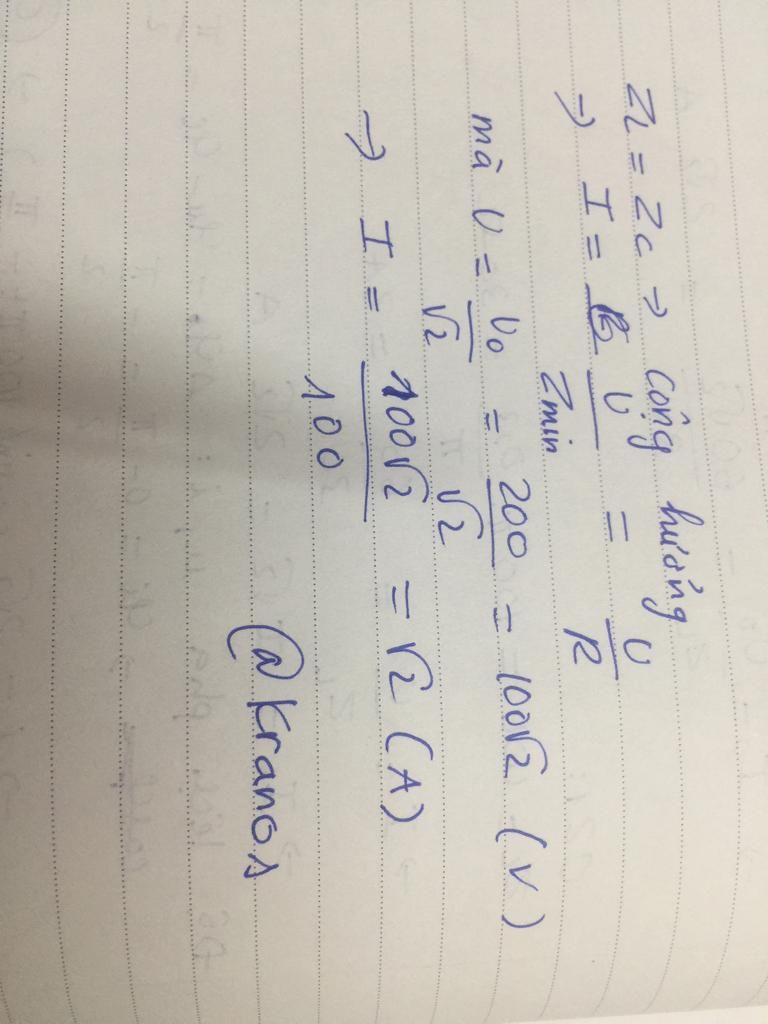 ZL = ZC → cộng hưởng
→ I = U/Zmin = U/R
mà U = U₀/√2 = 200/√2 = 100√2 (V)
→ I = 100√2/100 = √2 (A)
@Kranos